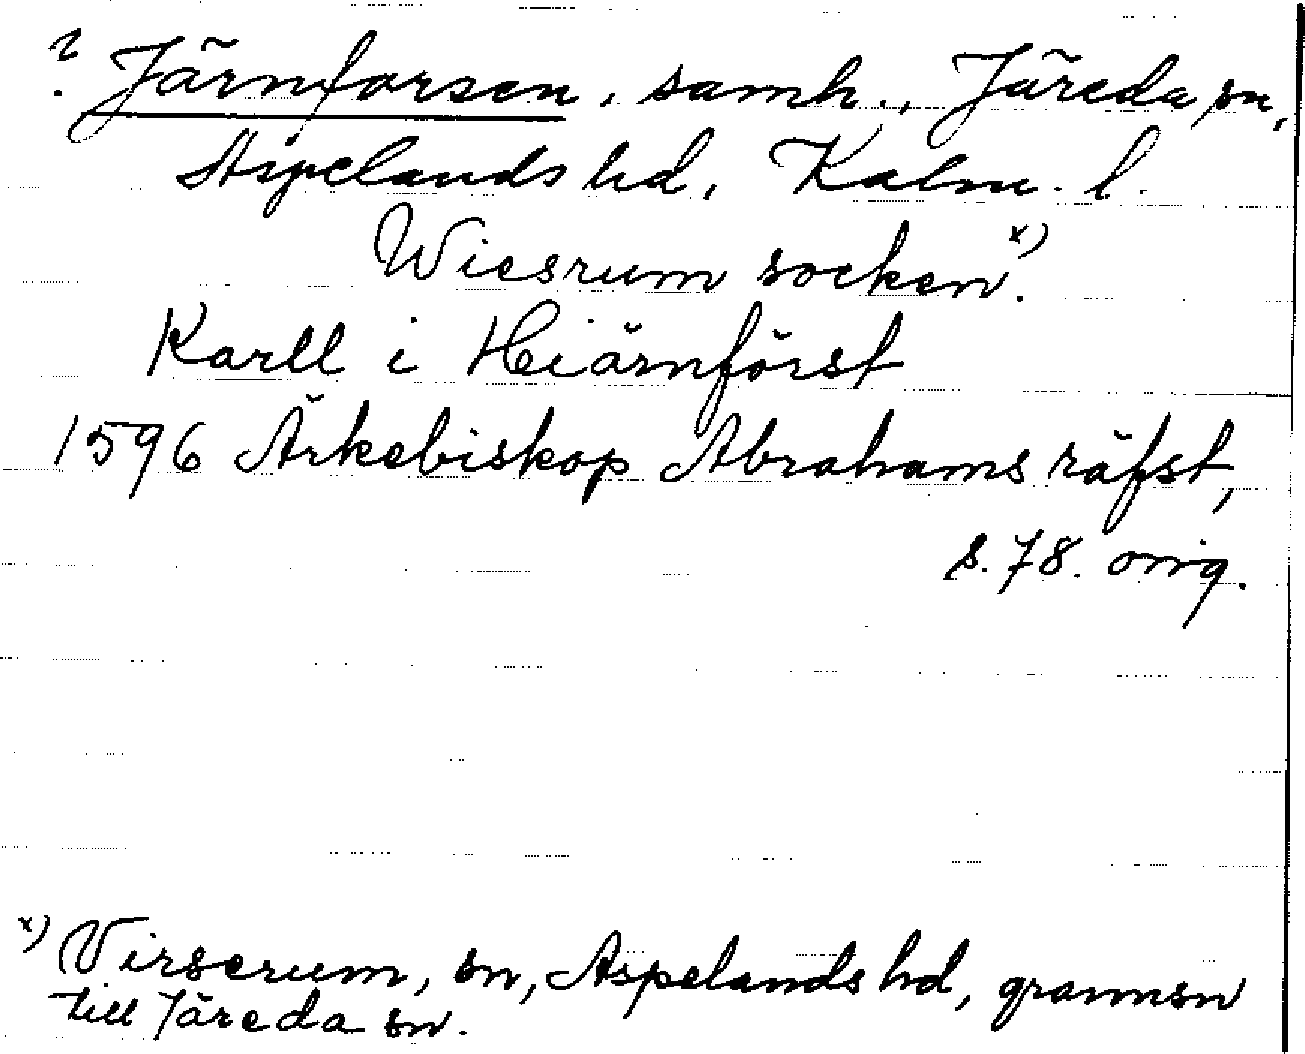 ? Järnforsen, samh., Järeda sn,
Aspelands hd, Kalm. l.
Wiesrum socken x).
Karll i Heiärnförst
1596 Ärkebiskop Abrahams räfst,
s. 78. orig.
x) Virserum, sn, Aspelands hd, grannsn
till Järeda sn.